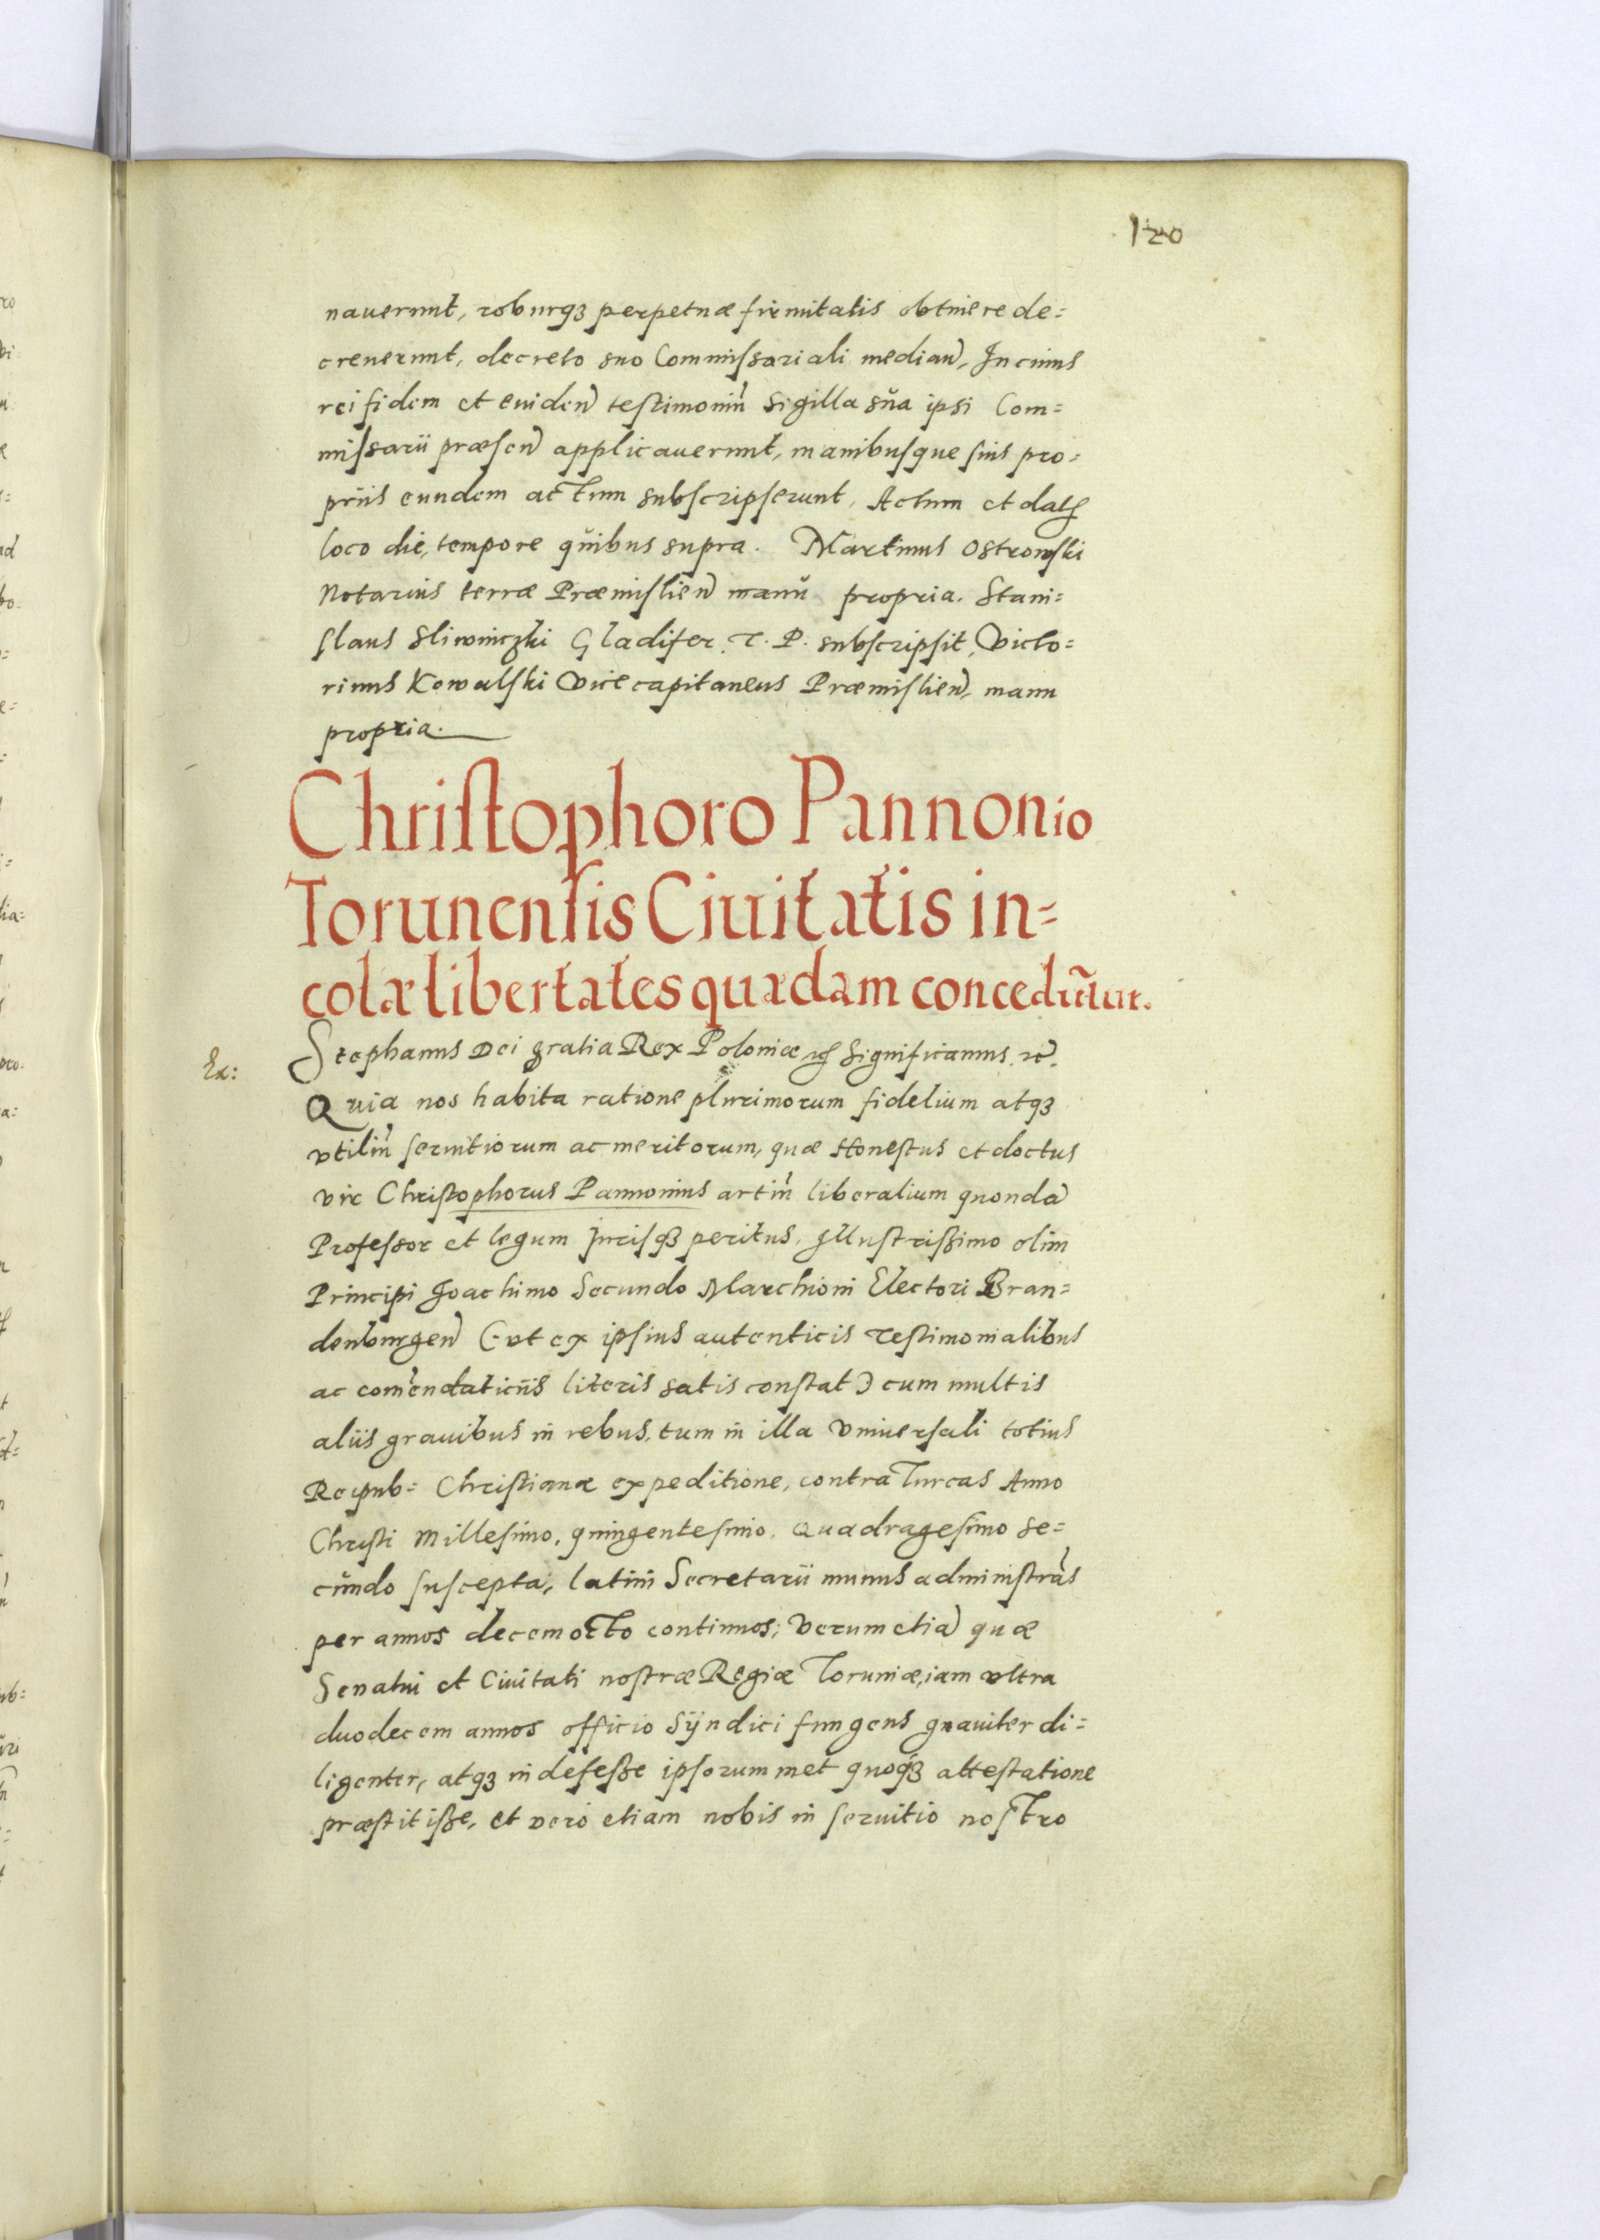 120
nauerunt, roburq3 perpetuæ firmitatis obtinere de=
creuerunt, decreto suo Commissariali median̄, In cuius
rei fidem et euiden̄ testimoniū sigilla sũa ipsi Com=
missarii præsen̄ applicauerunt, manibusque suis pro=
priis eundem actum subscripserunt, Actum et dat
loco die, tempore quibus supra. Martinus Ostrowski
Notarius terræ Præmislien̄ manŭ propria. Stani=
slaus Sliwniczki Gladifer. T. P. subscripsit, Victo=
rinus Kowalski Vicecapitaneus Præmislien̄, manu
propria.
Christophoro Pannonio
Torunensis Ciuitatis in=
colæ libertates quædam concedūtur.
Ex: Stephanus Dei gratia Rex Poloniæ Significamus
Quia nos habita ratione plurimorum fidelium atq3
vtiliū seruitiorum ac meritorum, quæ Honestus et doctus
vir Christophorus Pannonius artiū liberalium quondā
Professor et legum Jurisq3 peritus, Illustrissimo olim
Principi Joachimo Secundo Marchioni Electori Bran=
denburgen̄ (vt ex ipsius autenticis testimonialibus
ac com̄endaticiis literis satis constat) cum multis
aliis grauibus in rebus, tum in illa vniuersali totius
Reipub= Christianæ expeditione, contra Turcas Anno
Christi Millesimo, quingentesimo, Quadragesimo se=
cŭndo suscepta, latini Secretarii munus administrās
per annos decem octo continuos; Verum etiā quæ
Senatui et Ciuitati nostræ Regiæ Toruniæ, iam vltra
duodecem annos officio Syndici fungens grauiter di=
ligenter, atq3 indefesse ipsorummet quoq3 attestatione
præstitisse, et vero etiam nobis in seruitio nostro